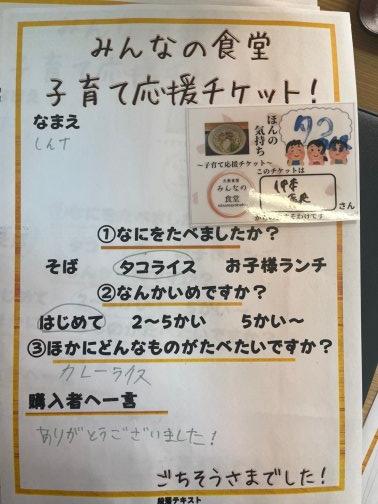 みんなの食堂
子育て応援チケット!
なまえ
ほんの
気持ち
タコ
~子育て応援チケット~
みんなの
食堂
このチケットは
さん
①なにをたべましたか?
そば タコライス お子様ランチ
②なんかいめですか?
はじめて 2~5かい 5かい~
③ほかにどんなものがたべたいですか?
カレーライス
購入者へ一言
ありがとうございました!
ごちそうさまでした!
段落テキスト